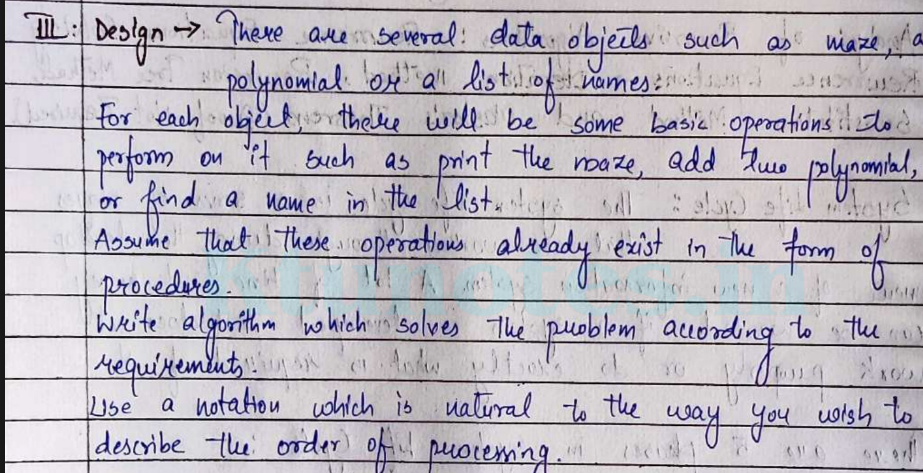 III: Design → There are several data objects such as maze, a
polynomial or a list of names.
For each object, there will be some basic operations to
perform on it such as print the maze, add two polynomial,
or find a name in the list.
Assume that these operations already exist in the form of
procedures.
Write algorithm which solves the problem according to the
requirements.
Use a notation which is natural to the way you wish to
describe the order of processing.
Ktunotes.in